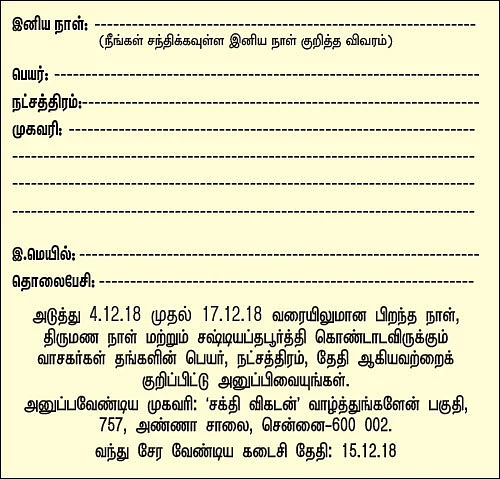 இனிய நாள்: ------------------------------------------------
(நீங்கள் சந்திக்கவுள்ள இனிய நாள் குறித்த விவரம்)
பெயர்: ------------------------------------------------
நட்சத்திரம்:------------------------------------------------
முகவரி: ------------------------------------------------
------------------------------------------------
------------------------------------------------
------------------------------------------------
இ.மெயில்: ------------------------------------------------
தொலைபேசி: ------------------------------------------------
அடுத்து 4.12.18 முதல் 17.12.18 வரையிலுமான பிறந்த நாள்,
திருமண நாள் மற்றும் சஷ்டியப்தபூர்த்தி கொண்டாடவிருக்கும்
வாசகர்கள் தங்களின் பெயர், நட்சத்திரம், தேதி ஆகியவற்றைக்
குறிப்பிட்டு அனுப்பிவையுங்கள்.
அனுப்பவேண்டிய முகவரி: ‘சக்தி விகடன்’ வாழ்த்துங்களேன் பகுதி,
757, அண்ணா சாலை, சென்னை-600 002.
வந்து சேர வேண்டிய கடைசி தேதி: 15.12.18